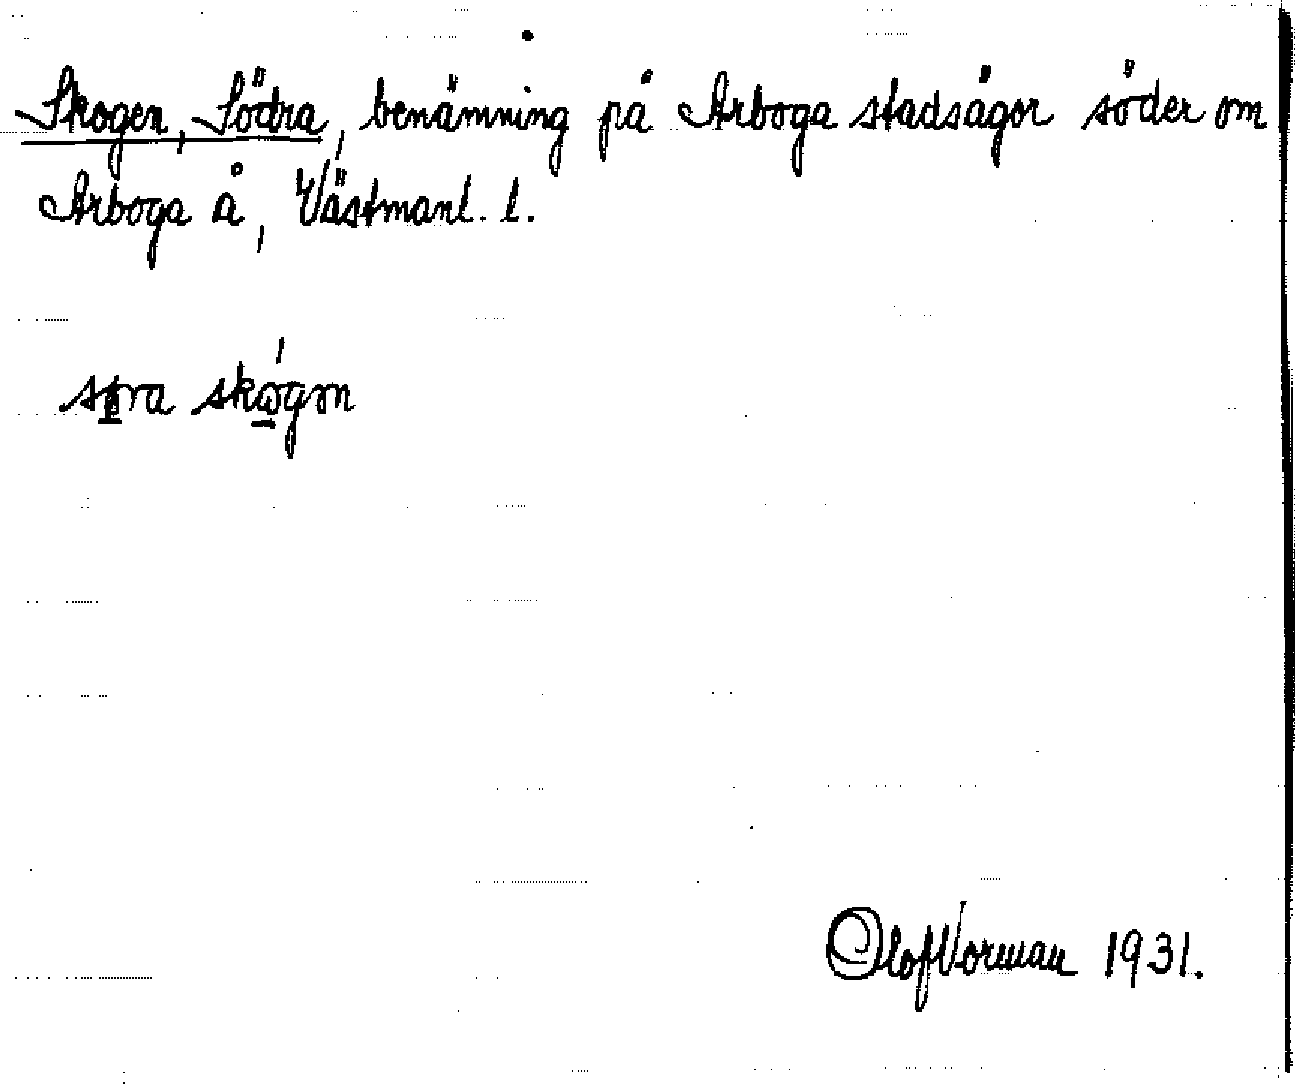 Skogen, Södra, benämning på Arboga stadsägor söder om
Arboga å, Västmanl. l.
sø̱ra skώ̱gɷn
Olof Vorman 1931.